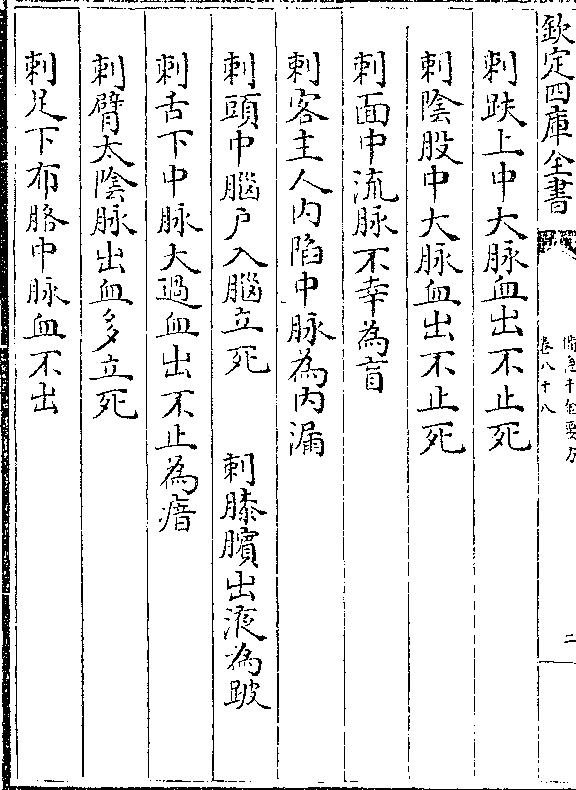 欽定四庫全書
備急千金要方
卷八十八
二
刺趺上中大脉血出不止死
刺陰股中大脉血出不止死
刺面中流脉不幸為盲
刺客主人内陷中脉為内漏
刺頭中腦户入腦立死　刺膝臏出液為跛
刺舌下中脉大過血出不止為瘖
刺臂太陰脉出血多立死
刺足下布胳中脉血不出